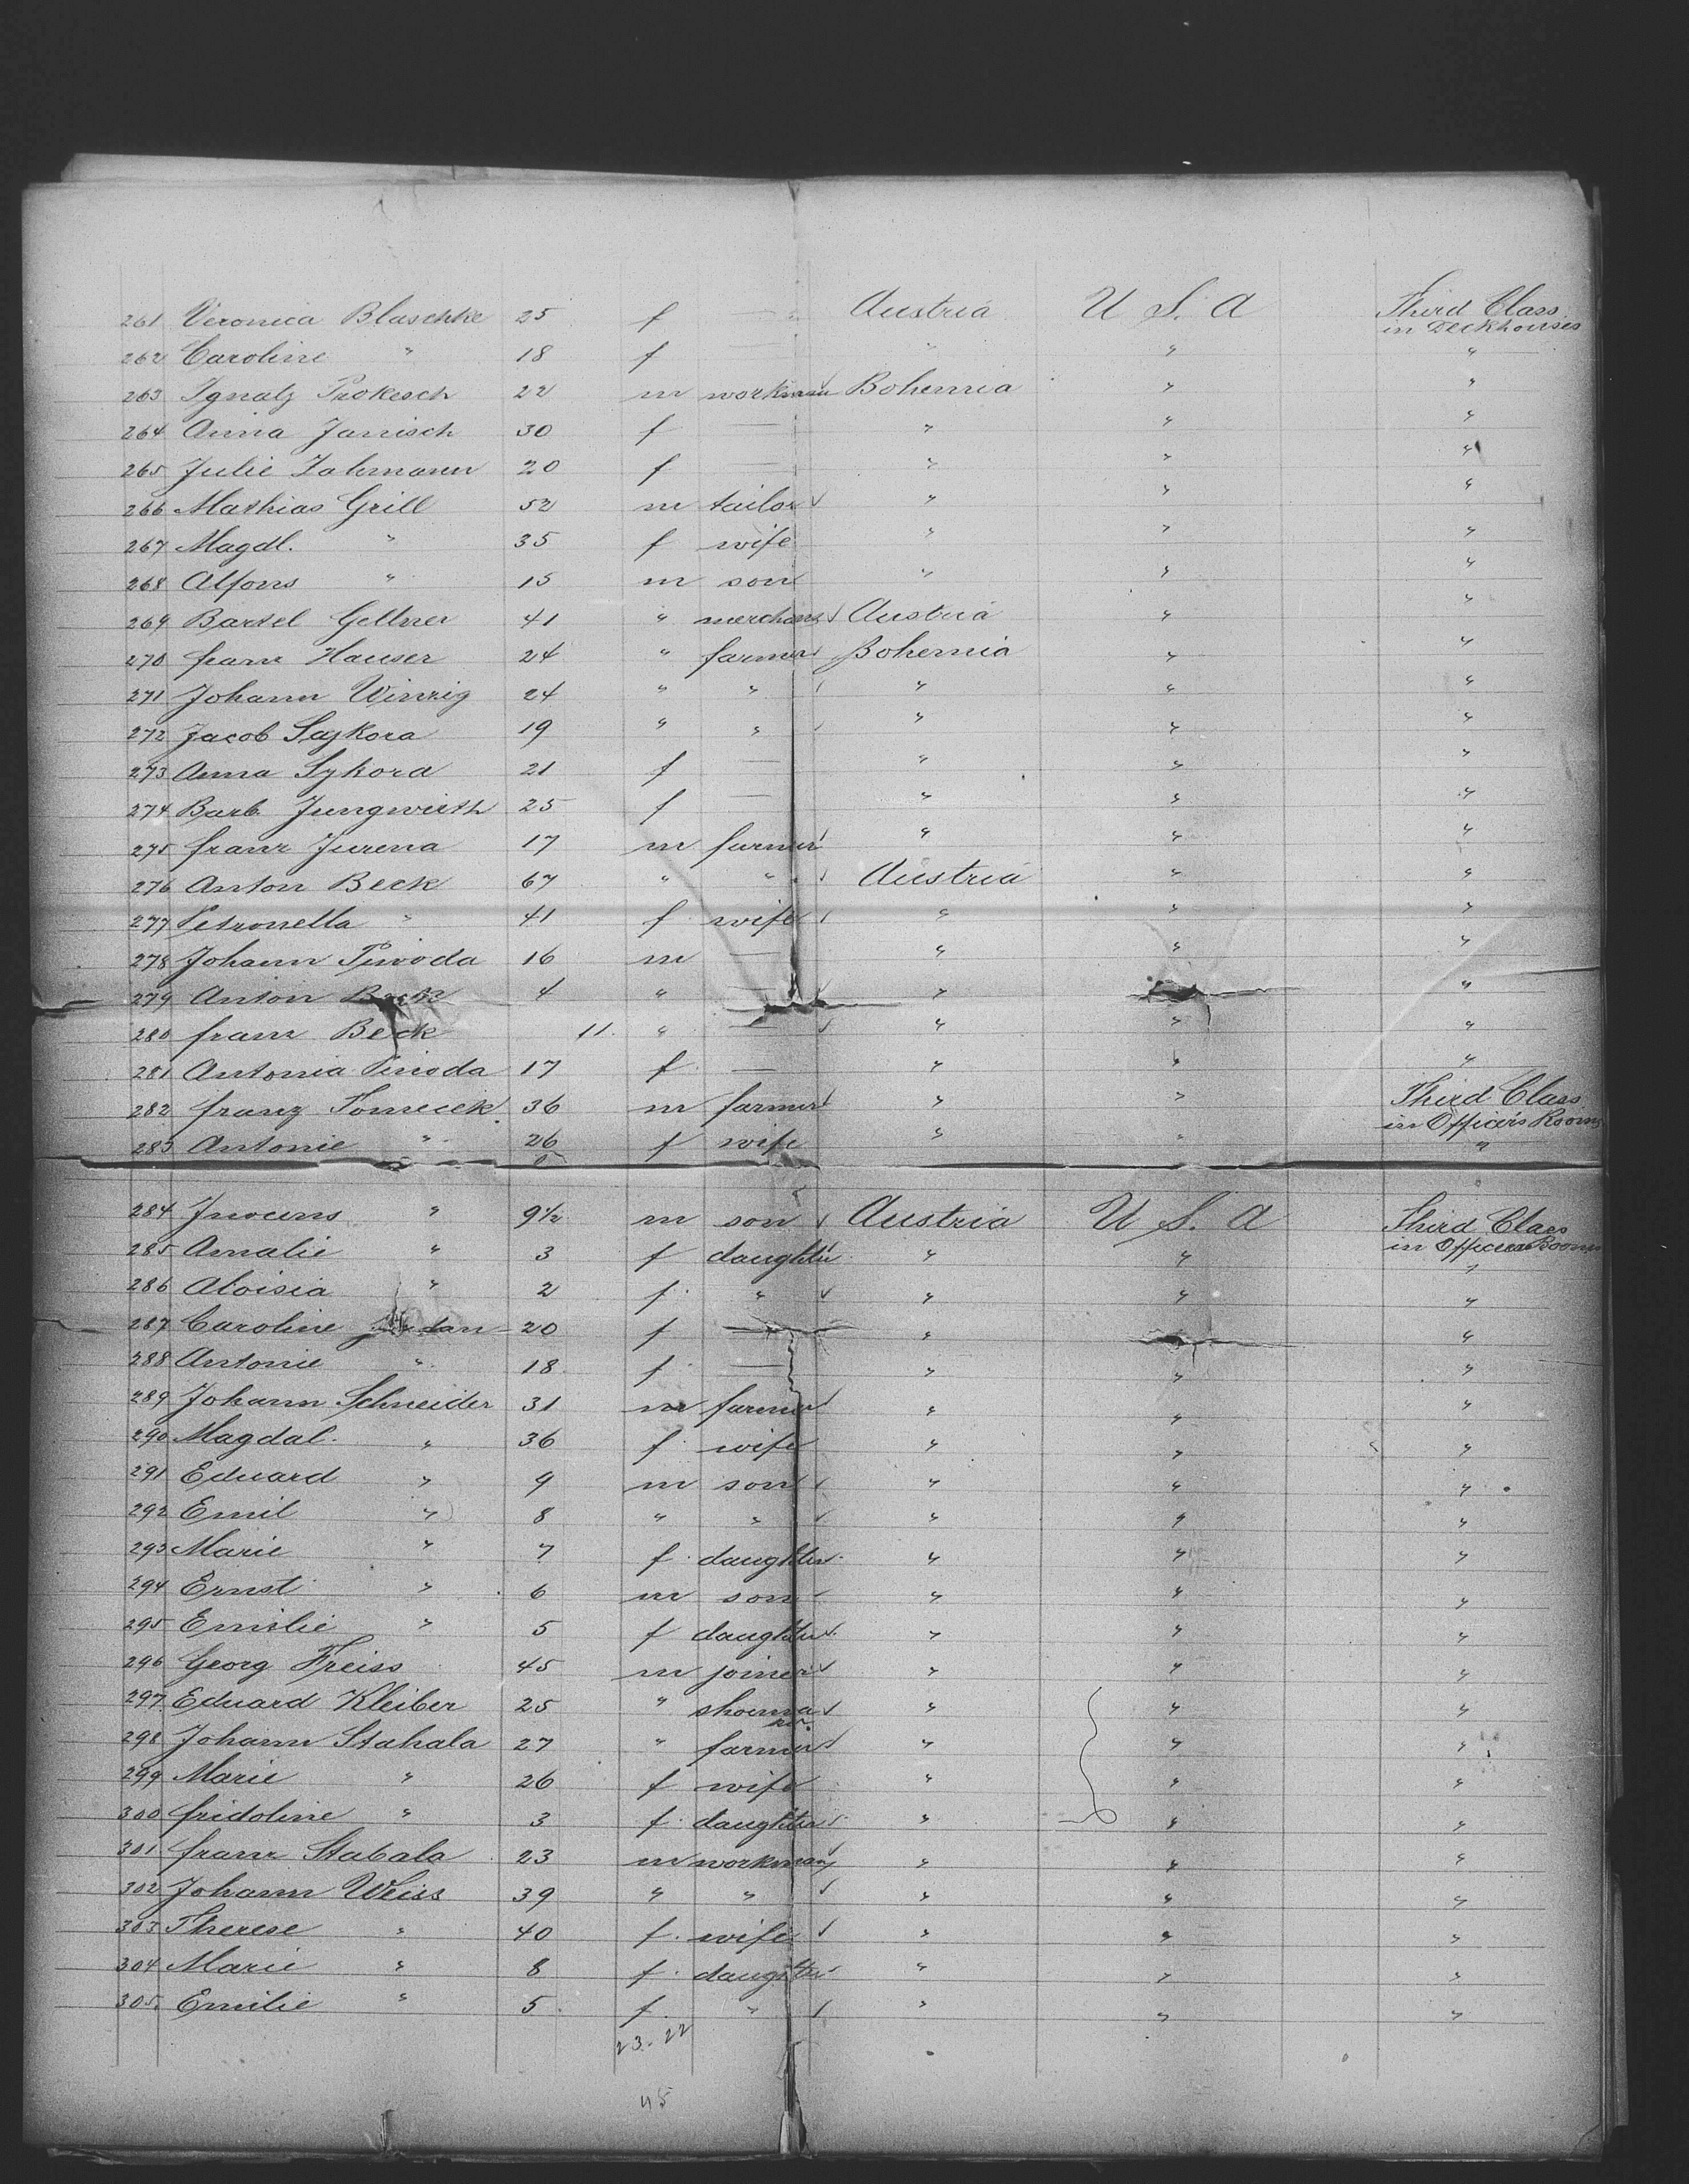 261 Veronica Blaschke 25 f — Austria U S. A Third Class in Deckhouses
262 Caroline " 18 f — " " "
263 Ignatz Prokesch 22 m workman Bohemia " "
264 Anna Janisch 30 f — " " "
265 Julie 20 f — " " "
266 Mathias Grill 52 m tailor " " "
267 Magdl. " 35 f wife " " "
268 Alfons " 15 m son " " "
269 Bartel Gellner 41 " merchant Austria " "
270 franz Hauser 24 " farmer Bohemia " "
271 Johann Winzig 24 " " " " "
272 Jacob Sajkora 19 " " " " "
273 Anna Sykora 21 f — " " "
274 Barb. Jungwirth 25 f — " " "
275 franz Jurena 17 m farmer " " "
276 Anton Beck 67 " " Austria " "
277 Petronella " 41 f wife " " "
278 Johann Pivoda 16 m — " " "
279 Anton Beck 4 " — " " "
280 franz Beck 11. " — " " "
281 Antonia Pivoda 17 f — " " "
282 franz Tomecek 36 m farmer " " Third Class in Officers Rooms
283 Antonie " 26 f wife " " "
284 " 9½ m son Austria U S. A Third Class in Officers Rooms
285 Amalie " 3 f daughter " " "
286 Aloisia " 2 f. " " " "
287 Caroline 20 f — " " "
288 Antonie " 18 f. — " " "
289 Johann Schneider 31 m farmer " " "
290 Magdal. " 36 f. wife " " "
291 Eduard " 9 m son " " "
292 Emil " 8 " " " " "
293 Marie " 7 f. daughter " " "
294 Ernst " 6 m son " " "
295 Emilie " 5 f daughter " " "
296 Georg Freiss 45 m joiner " " "
297 Eduard Kleiber 25 " " " "
298 Johann Stahala 27 " farmer " " "
299 Marie " 26 f wife " " "
300 fridoline " 3 f. daughter " " "
301 franz Stabala 23 m workman " " "
302 Johann Weiss 39 " " " " "
303 Therese " 40 f. wife " " "
304 Marie " 8 f. daughter " " "
305. Emilie " 5 f. " " " "
23. 22
45